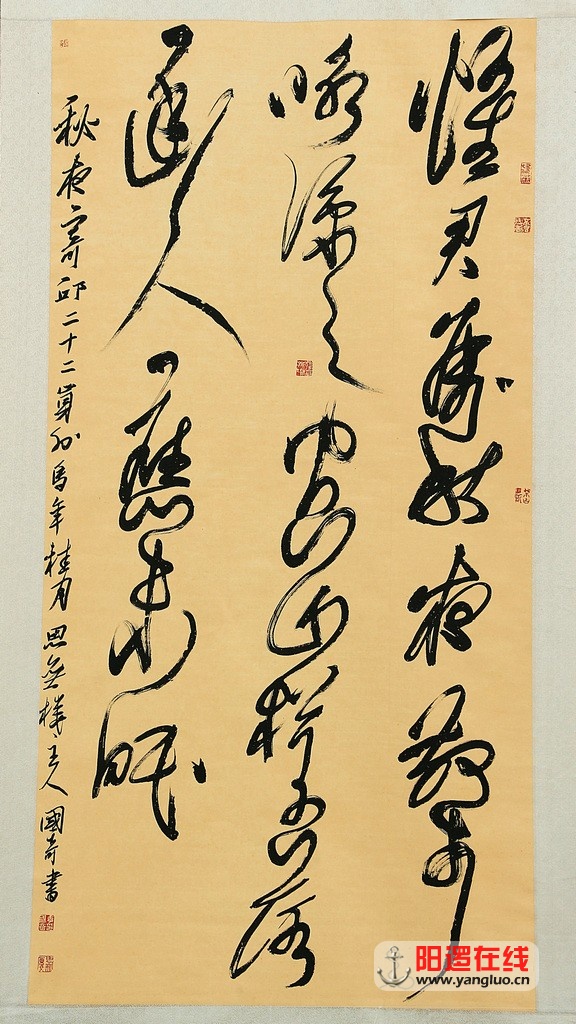 懷君屬秋夜散步
咏涼天空山松子落
幽人應未眠
秋夜寄邱二十二員外 馬年桂月 思無主人 國奇書
阳逻在线
www.yangluo.cn